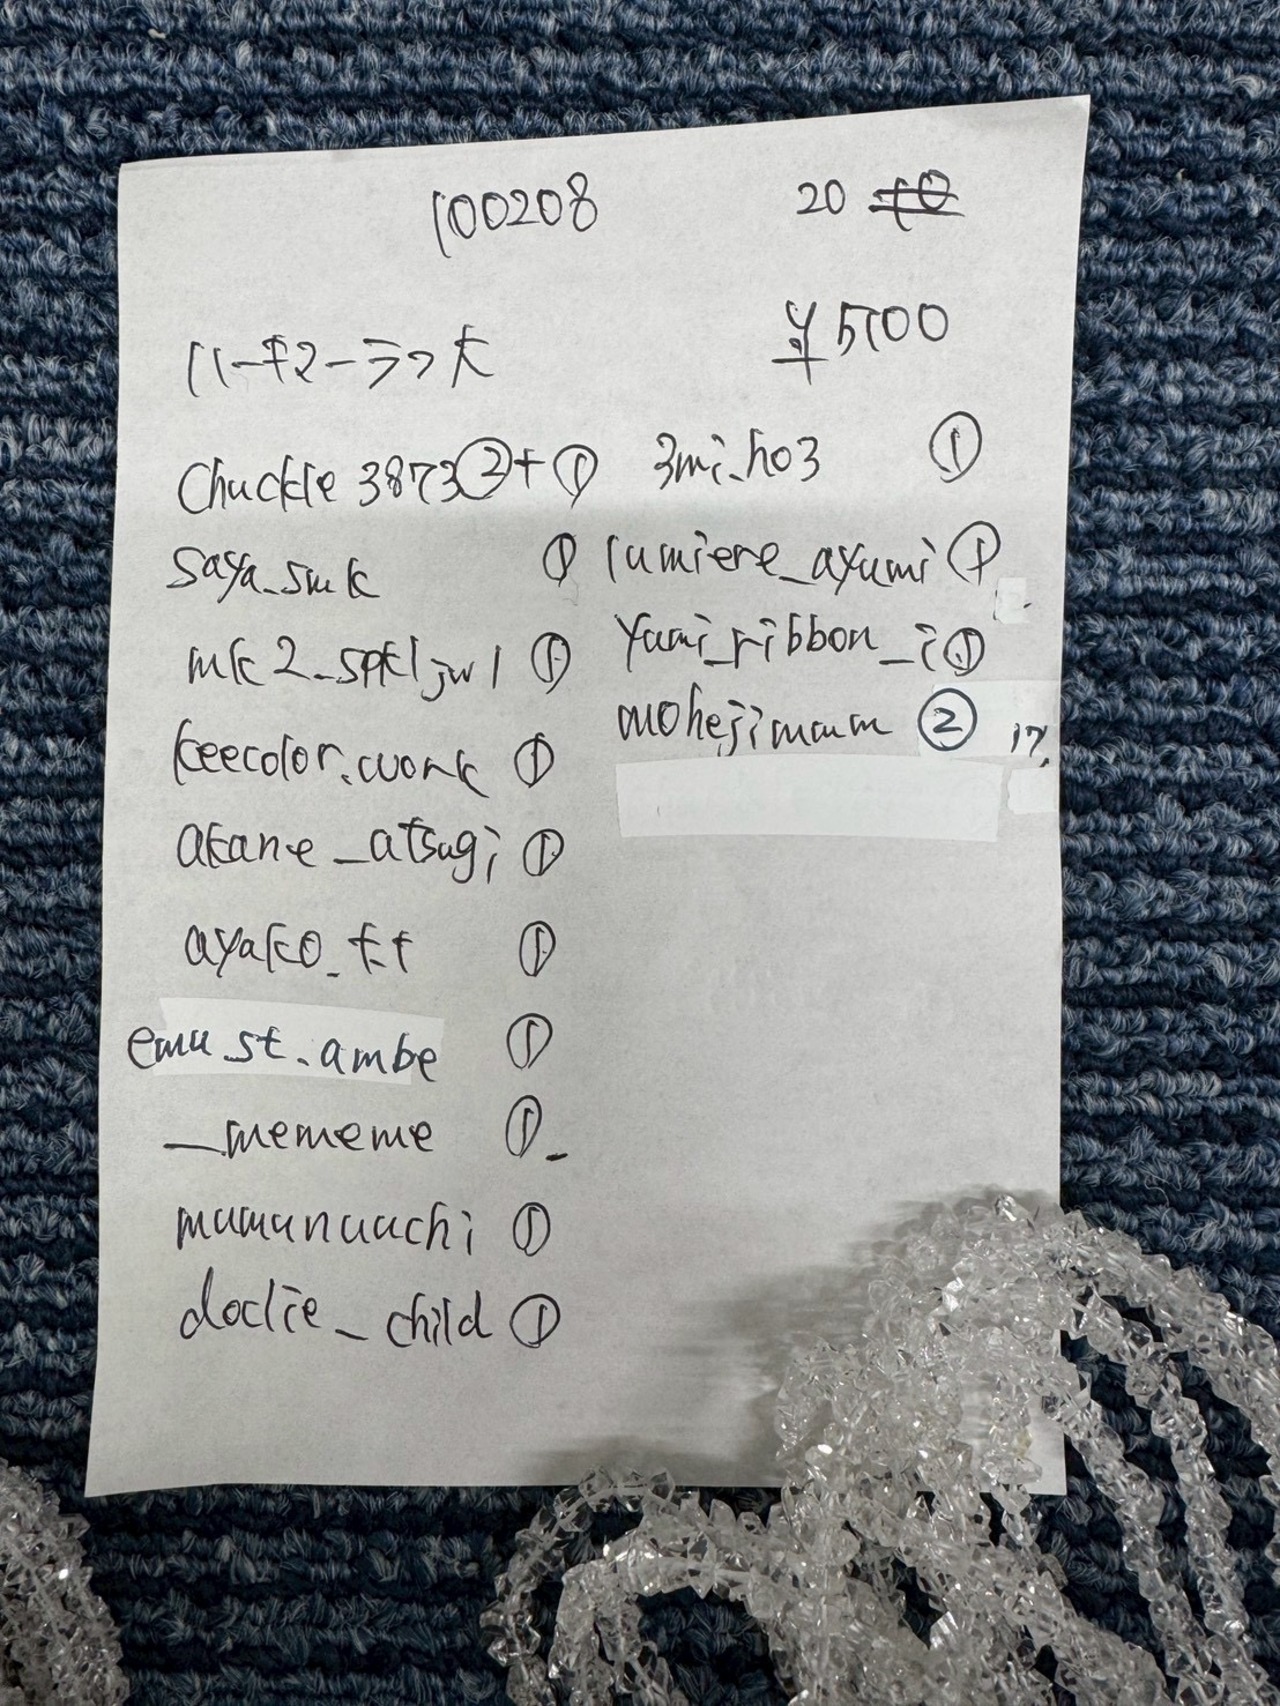 100208
20 10
¥5700
ハーキマーラフ大
Chuckle 3873 ②+①
saya_smk ①
mk2_spkljwl ①
keecolor.work ①
akane_atsugi ①
ayako_tt ①
emu_st.ambe ①
_mememe ①_
mumunuuchi ①
doclie_child ①
3mi.ho3 ①
lumiere_ayumi ①
yumi_ribbon_i ①
mohejimum ②
17